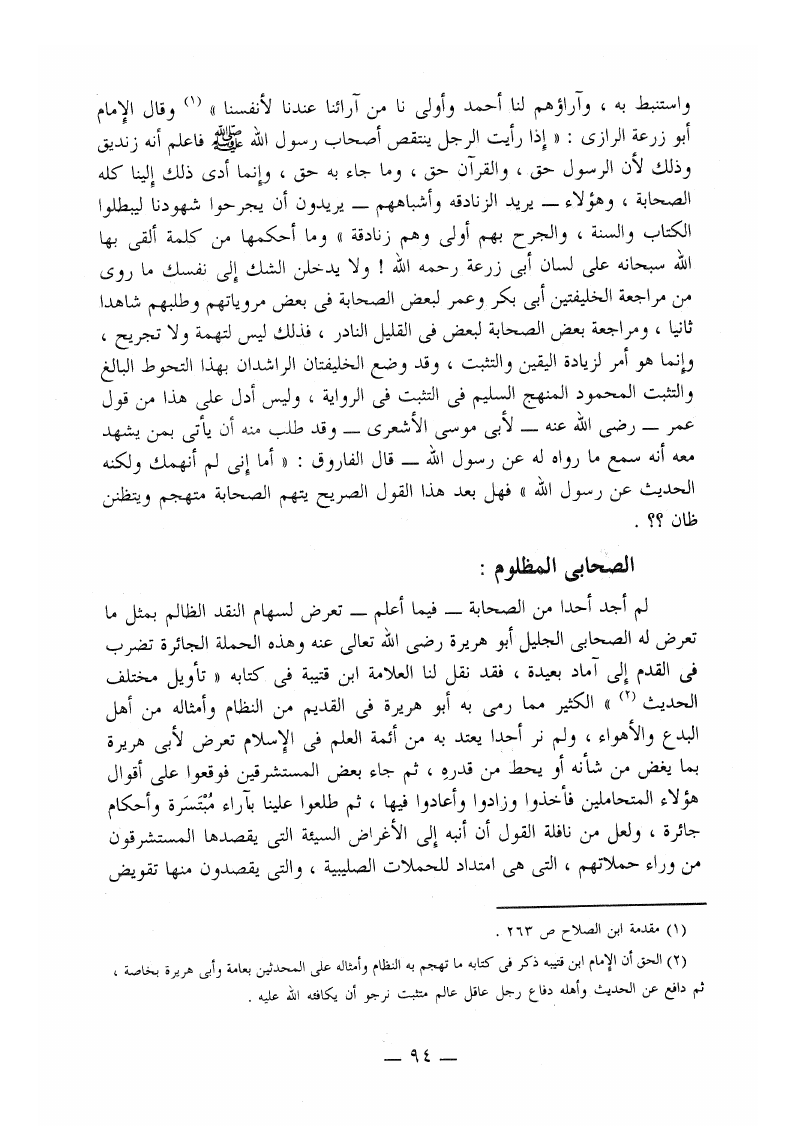 واستنبط به ، وآراؤهم لنا أحمد وأولى نا من آرائنا عندنا لأنفسنا » (١) وقال الإمام
أبو زرعة الرازى : « إذا رأيت الرجل ينتقص أصحاب رسول الله ﷺ فاعلم أنه زنديق
وذلك لأن الرسول حق ، والقرآن حق ، وما جاء به حق ، وإنما أدى ذلك إلينا كله
الصحابة ، وهؤلاء ــ يريد الزنادقه وأشباههم ــ يريدون أن يجرحوا شهودنا ليبطلوا
الكتاب والسنة ، والجرح بهم أولى وهم زنادقة » وما أحكمها من كلمة ألقى بها
الله سبحانه على لسان أبى زرعة رحمه الله ! ولا يدخلن الشك إلى نفسك ما روى
من مراجعة الخليفتين أبى بكر وعمر لبعض الصحابة فى بعض مروياتهم وطلبهم شاهدا
ثانيا ، ومراجعة بعض الصحابة لبعض فى القليل النادر ، فذلك ليس لتهمة ولا تجريح ،
وإنما هو أمر لزيادة اليقين والتثبت ، وقد وضع الخليفتان الراشدان بهذا التحوط البالغ
والتثبت المحمود المنهج السليم فى التثبت فى الرواية ، وليس أدل على هذا من قول
عمر ــ رضى الله عنه ــ لأبى موسى الأشعرى ــ وقد طلب منه أن يأتى بمن يشهد
معه أنه سمع ما رواه له عن رسول الله ــ قال الفاروق : « أما إنى لم أنهمك ولكنه
الحديث عن رسول الله » فهل بعد هذا القول الصريح يتهم الصحابة متهجم ويتظنن
ظان ؟؟ .
الصحابى المظلوم :
لم أجد أحدا من الصحابة ــ فيما أعلم ــ تعرض لسهام النقد الظالم بمثل ما
تعرض له الصحابى الجليل أبو هريرة رضى الله تعالى عنه وهذه الحملة الجائرة تضرب
فى القدم إلى آماد بعيدة ، فقد نقل لنا العلامة ابن قتيبة فى كتابه « تأويل مختلف
الحديث (٢) » الكثير مما رمى به أبو هريرة فى القديم من النظام وأمثاله من أهل
البدع والأهواء ، ولم نر أحدا يعتد به من أئمة العلم فى الإسلام تعرض لأبى هريرة
بما يغض من شأنه أو يحط من قدره ، ثم جاء بعض المستشرقين فوقعوا على أقوال
هؤلاء المتحاملين فأخذوا وزادوا وأعادوا فيها ، ثم طلعوا علينا بآراء مُبْتَسَرة وأحكام
جائرة ، ولعل من نافلة القول أن أنبه إلى الأغراض السيئة التى يقصدها المستشرقون
من وراء حملاتهم ، التى هى امتداد للحملات الصليبية ، والتى يقصدون منها تقويض
(١) مقدمة ابن الصلاح ص ٢٦٣ .
(٢) الحق أن الإمام ابن قتيبه ذكر فى كتابه ما تهجم به النظام وأمثاله على المحدثين بعامة وأبى هريرة بخاصة ،
ثم دافع عن الحديث وأهله دفاع رجل عاقل عالم متثبت نرجو أن يكافئه الله عليه .
ــ ٩٤ ــ